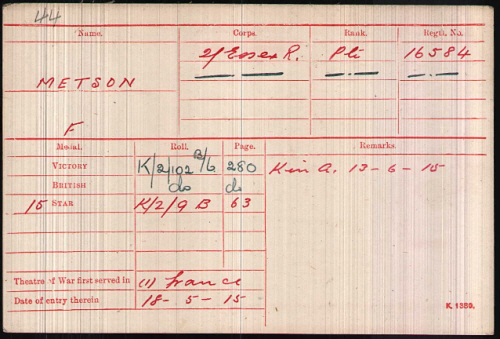 44
Name. Corps. Rank. Regtl. No.
METSON 2/Essex R. Pte 16584
F
Medal. Roll. Page. Remarks.
VICTORY K/2/102 B/6 280 K in A. 13-6-15
BRITISH do do
15 STAR K/2/9 B 63
Theatre of War first served in (1) France
Date of entry therein 18-5-15
K. 1380.